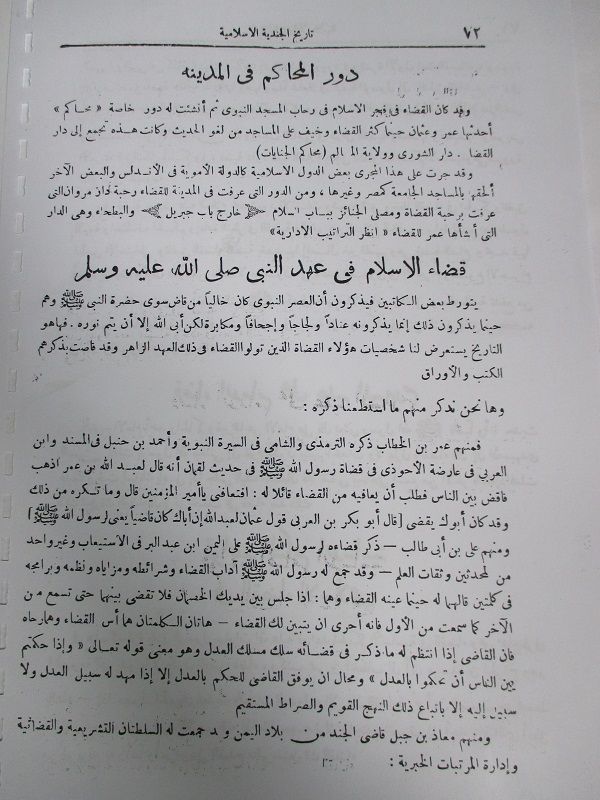 ٧٢
تاريخ الجندية الاسلامية
دور المحاكم فى المدينه
وقد كان القضاء فى فجر الاسلام فى رحاب المسجد النبوى ثم أنشئت له دور خاصة « محاكم »
أحدثها عمر وعثمان حينما كثر القضاء وخيف على المساجد من لغو الحديث وكانت هذه تجمع إلى دار
القضا . دار الشورى وولاية المظالم (محاكم الجنايات)
وقد جرت على هذا المجرى بعض الدول الاسلامية كالدولة الأموية فى الأندلس والبعض الآخر
ألحقها بالمساجد الجامعة كمصر وغيرها ، ومن الدور التى عرفت فى المدينة للقضاء رحبة دار مروان التى
عرفت برحبة القضاة ومصلى الجنائز ببـاب السلام خارج باب جبريل والبطحاء وهى الدار
التى أنشأها عمر للقضاء « انظر التراتيب الادارية»
قضاء الاسلام فى عهد النبى صلى الله عليه وسلم
يتورط بعض الكاتبين فيذكرون أن العصر النبوى كان خالياً من قاض سوى حضرة النبى ﷺ وهم
حينما يذكرون ذلك إنما يذكرونه عناداً ولجاجاً وإجحافاً ومكابرة لكن أبى الله إلا أن يتم نوره . فهاهو
التاريخ يستعرض لنا شخصيات هؤلاء القضاة الذين تولوا القضاء فى ذلك العهد الزاهر وقد فاضت بذكرهم
الكتب والأوراق
وها نحن نذكر منهم ما استطعنا ذكره :
فمنهم عمر بن الخطاب ذكره الترمذى والشامى فى السيرة النبوية وأحمد بن حنبل فى المسند وابن
العربى فى عارضة الأحوذى فى قضاة رسول الله ﷺ فى حديث لقمان أنه قال لعبد الله بن عمر اذهب
فاقض بين الناس فطلب أن يعافيه من القضاء قائلا له : افتعافنى يا أمير المؤمنين قال وما تكره من ذلك
وقد كان أبوك يقضى [قال أبو بكر بن العربى قول عثمان لعبد الله إن أباك كان قاضياً يعنى لرسول الله ﷺ]
ومنهم على بن أبى طالب — ذكر قضاءه لرسول الله ﷺ على اليمن ابن عبد البر فى الاستيعاب وغير واحد
من المحدثين وثقات العلم — وقد جمع له رسول الله ﷺ آداب القضاء وشرائطه ومزاياه ونظمه وبرامجه
فى كلمتين قالهما له حينما عينه القضاء وهما : اذا جلس بين يديك الخصمان فلا تقضى بينهما حتى تسمع من
الآخر كما سمعت من الأول فانه أحرى ان يتبين لك القضاء — هاتان الكلمتان هما أس القضاء وهما رحاه
فان القاضى إذا انتظم له ما ذكر فى قضائه سلك مسلك العدل وهو معنى قوله تعالى « وإذا حكمتم
بين الناس أن تحكموا بالعدل » ومحال ان يوفق القاضى للحكم بالعدل إلا إذا مهد له سبيل العدل ولا
سبيل إليه إلا باتباع ذلك النهج القويم والصراط المستقيم
ومنهم معاذ بن جبل قاضى الجند من بلاد اليمن وقد جمعت له السلطتان التشريعية والقضائية
وإدارة المرتبات الخبرية :